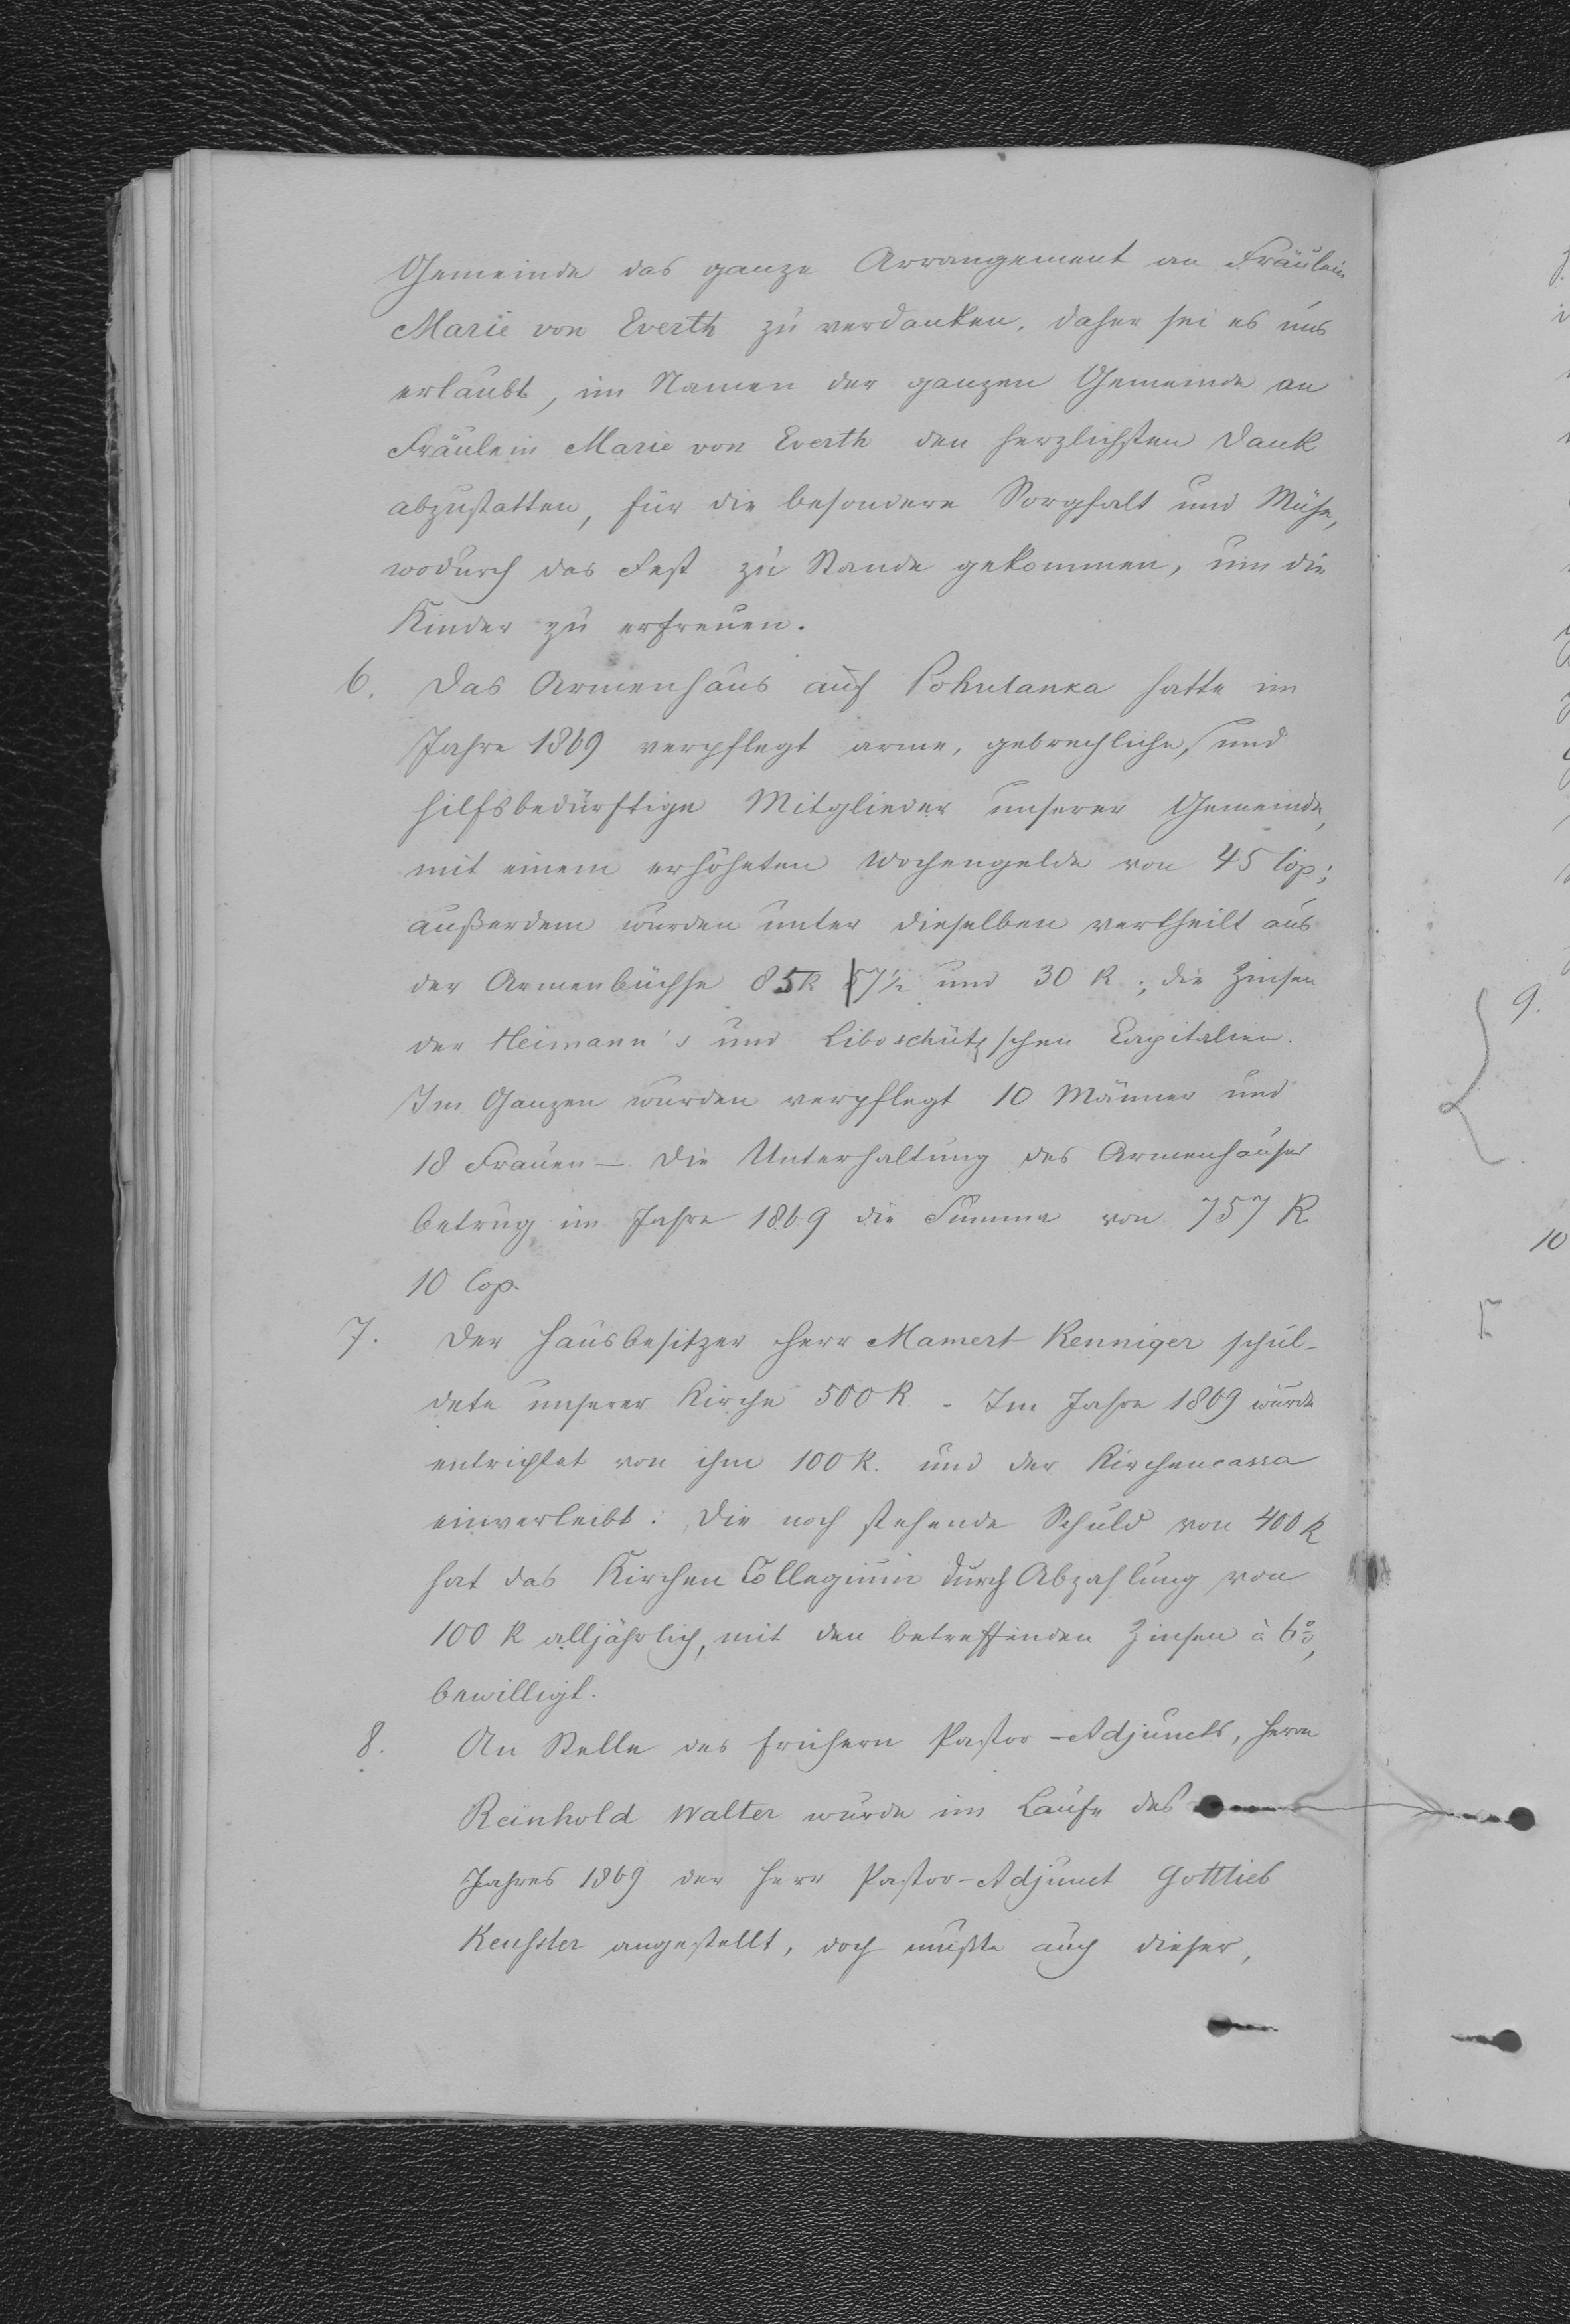 Gemeinde das ganze Arrangement an Fräulein
Marie von Everth zu verdanken, daher sei es uns
erlaubt, im Namen der ganzen Gemeinde an
Fräulein Marie von Everth den herzlichsten Dank
abzustatten, für die besondere Sorgfalt und Mühe,
wodurch das Fest zu Stande gekommen, um die
Kinder zu erfreuen.
6. Das Armenhaus auf Pohulanka hatte im
Jahre 1869 verpflegt arme, gebrechliche, und
hilfsbedürftige Mitglieder unserer Gemeinde,
mit einem erhöheten Wochengelde von 45 Cop;
außerdem wurden unter dieselben vertheilt aus
der Armenbüchse 85 R 57½ und 30 R; die Zinsen
der Heimann's und Liboschützschen Capitalien.
Im Ganzen wurden verpflegt 10 Männer und
18 Frauen – Die Unterhaltung des Armenhauses
betrug im Jahre 1869 die Summa von 757 R
10 Cop.
7. Der Hausbesitzer Herr Mamert Renniger schul-
dete unserer Kirche 500 R. - Im Jahre 1869 wurde
entrichtet von ihm 100 R. und der Kirchencassa
einverleibt. Die noch stehende Schuld von 400 R
hat das Kirchen Collegium durch Abzahlung von
100 R alljährlich, mit den betreffenden Zinsen à 6%,
bewilligt.
8. An Stelle des frühern Pastor-Adjuncts, Herrn
Reinhold Walter wurde im Laufe des
Jahres 1869 der Herr Pastor-Adjunct Gottlieb
Keussler angestellt, doch mußte auch dieser,
9.
10